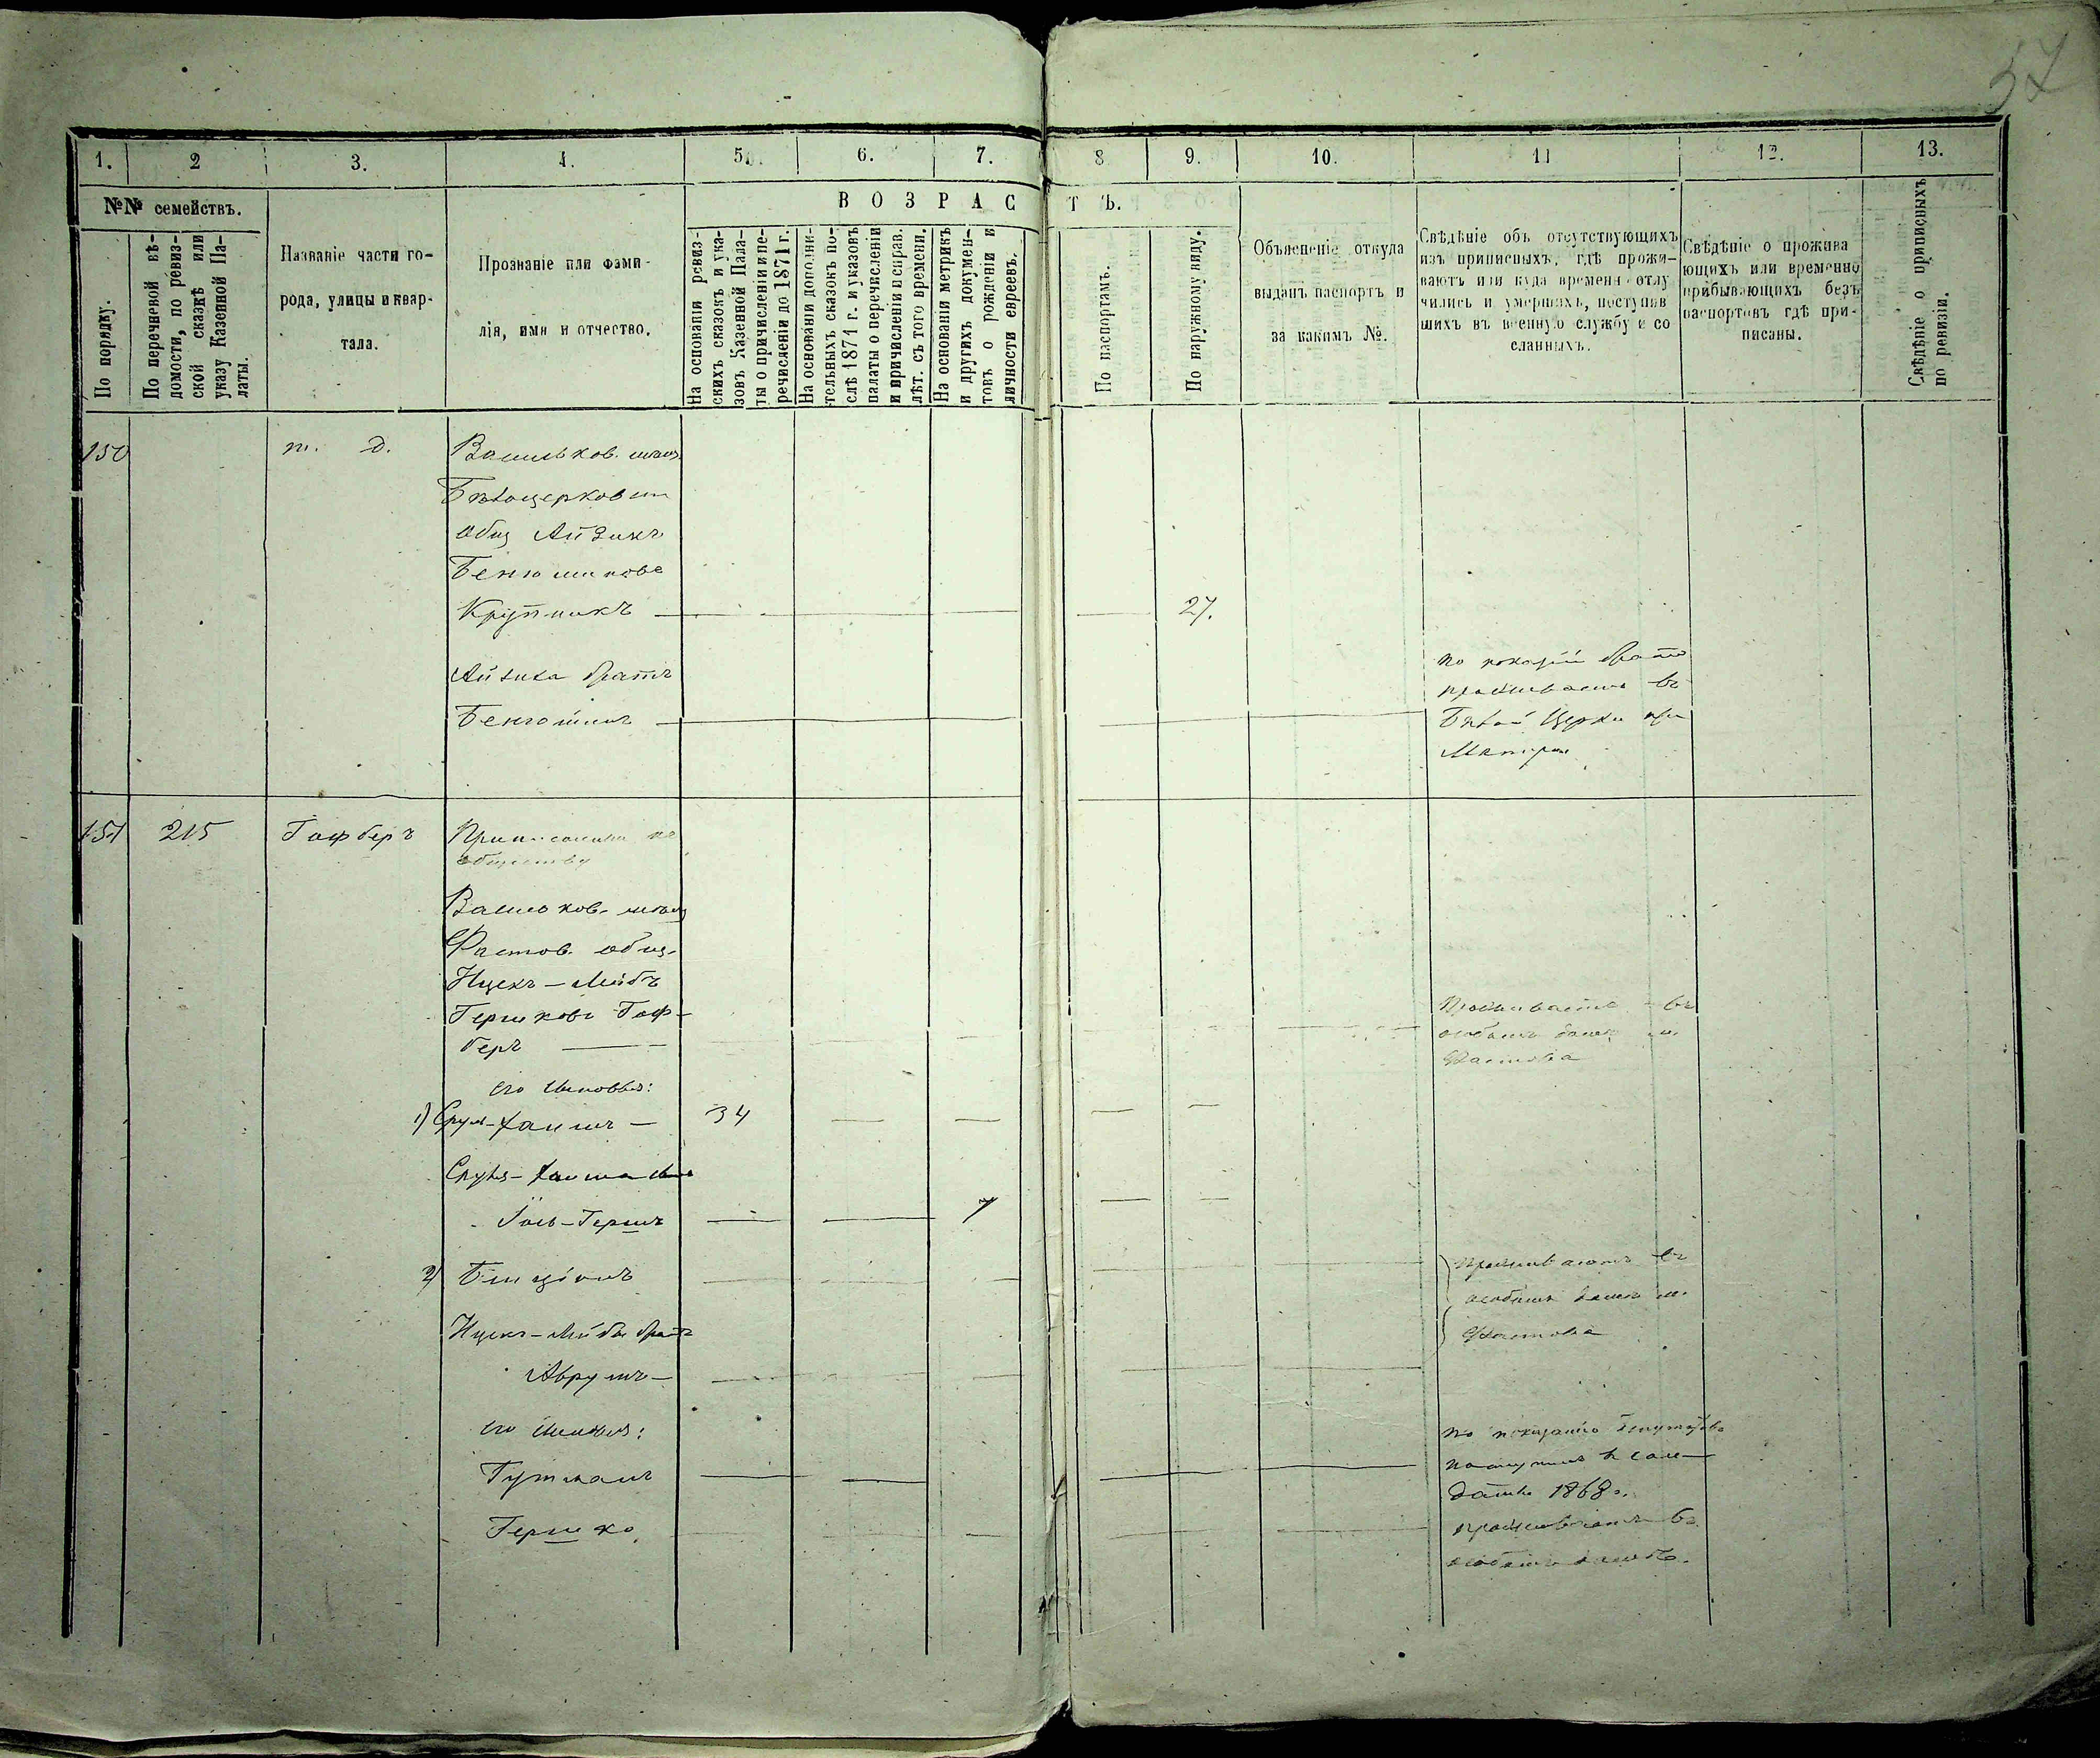 57
1. 2 3. 4. 5. 6. 7. 8 9. 10. 11 12. 13.
№№ семействъ.
По порядку.
По перечневой вѣ-
домости, по ревиз-
ской сказкѣ или
указу Казенной Па-
латы.
Названіе части го-
рода, улицы и квар-
тала.
Прозваніе или фами-
лія, имя и отчество.
ВОЗРАСТЪ.
На основаніи ревиз-
скихъ сказокъ и ука-
зовъ Казенной Пала-
ты о причисленіи и пе-
речисленіи до 1871 г.
На основаніи дополни-
тельныхъ сказокъ по-
слѣ 1871 г. и указовъ
палаты о перечисленіи
и причисленіи и справ.
лѣт. съ того времени.
На основаніи метрикъ
и другихъ докумен-
товъ о рожденіи и
личности евреевъ.
По паспортамъ.
По наружному виду.
Объясненіе откуда
выданъ паспортъ и
за какимъ №.
Свѣдѣніе объ отсутствующихъ
изъ приписныхъ, гдѣ прожи-
ваютъ или куда времени отлу
чились и умершихъ, поступив
шихъ въ военную службу и со
сланныхъ.
Свѣдѣніе о прожива
ющихъ или временно
прибывающихъ безъ
паспортовъ гдѣ при-
писаны.
Свѣдѣніе о приписныхъ
по ревизіи.
150 т. д. Васильков. мѣщ.
Бѣлоцерковск
общ Айзикъ
Беніоминовъ
Крупникъ — 27.
Айзика братъ
Беніоминъ —
по показанiи брата
проживаетъ въ
Бѣлой Церкви при
Матери
151 215 Гофберъ Приписанный къ
обществу
Васильков. мѣщ
Фастов. общ.
Ицекъ-Лейбъ
Гершковъ Гоф-
беръ —
Проживаетъ въ
особомъ домѣ м.
Фастова
его сыновья:
1) Сруль-Хаимъ — 34
Сруля-Хаима сынъ
Іось-Гершъ 7
2) Бенціонъ
Проживаютъ въ
особомъ домѣ м.
Фастова
Ицекъ-Лейбы братъ
Аврумъ —
его сыновья:
Гутманъ
по показанію
поступилъ въ сол-
даты 1868 г.
Гершко
проживаетъ въ
особомъ домѣ.